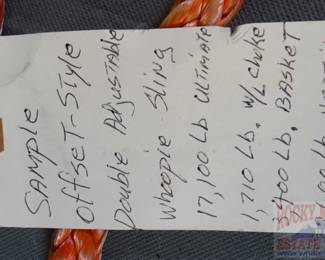 SAMPLE
OffSeT-STyle
Double Adjustable
Whoopie Sling
17,100 Lb ULTIMATE
1,710 Lb. W/L Choke
400 Lb. BASKET
Lb
ROCKY
ESTATE